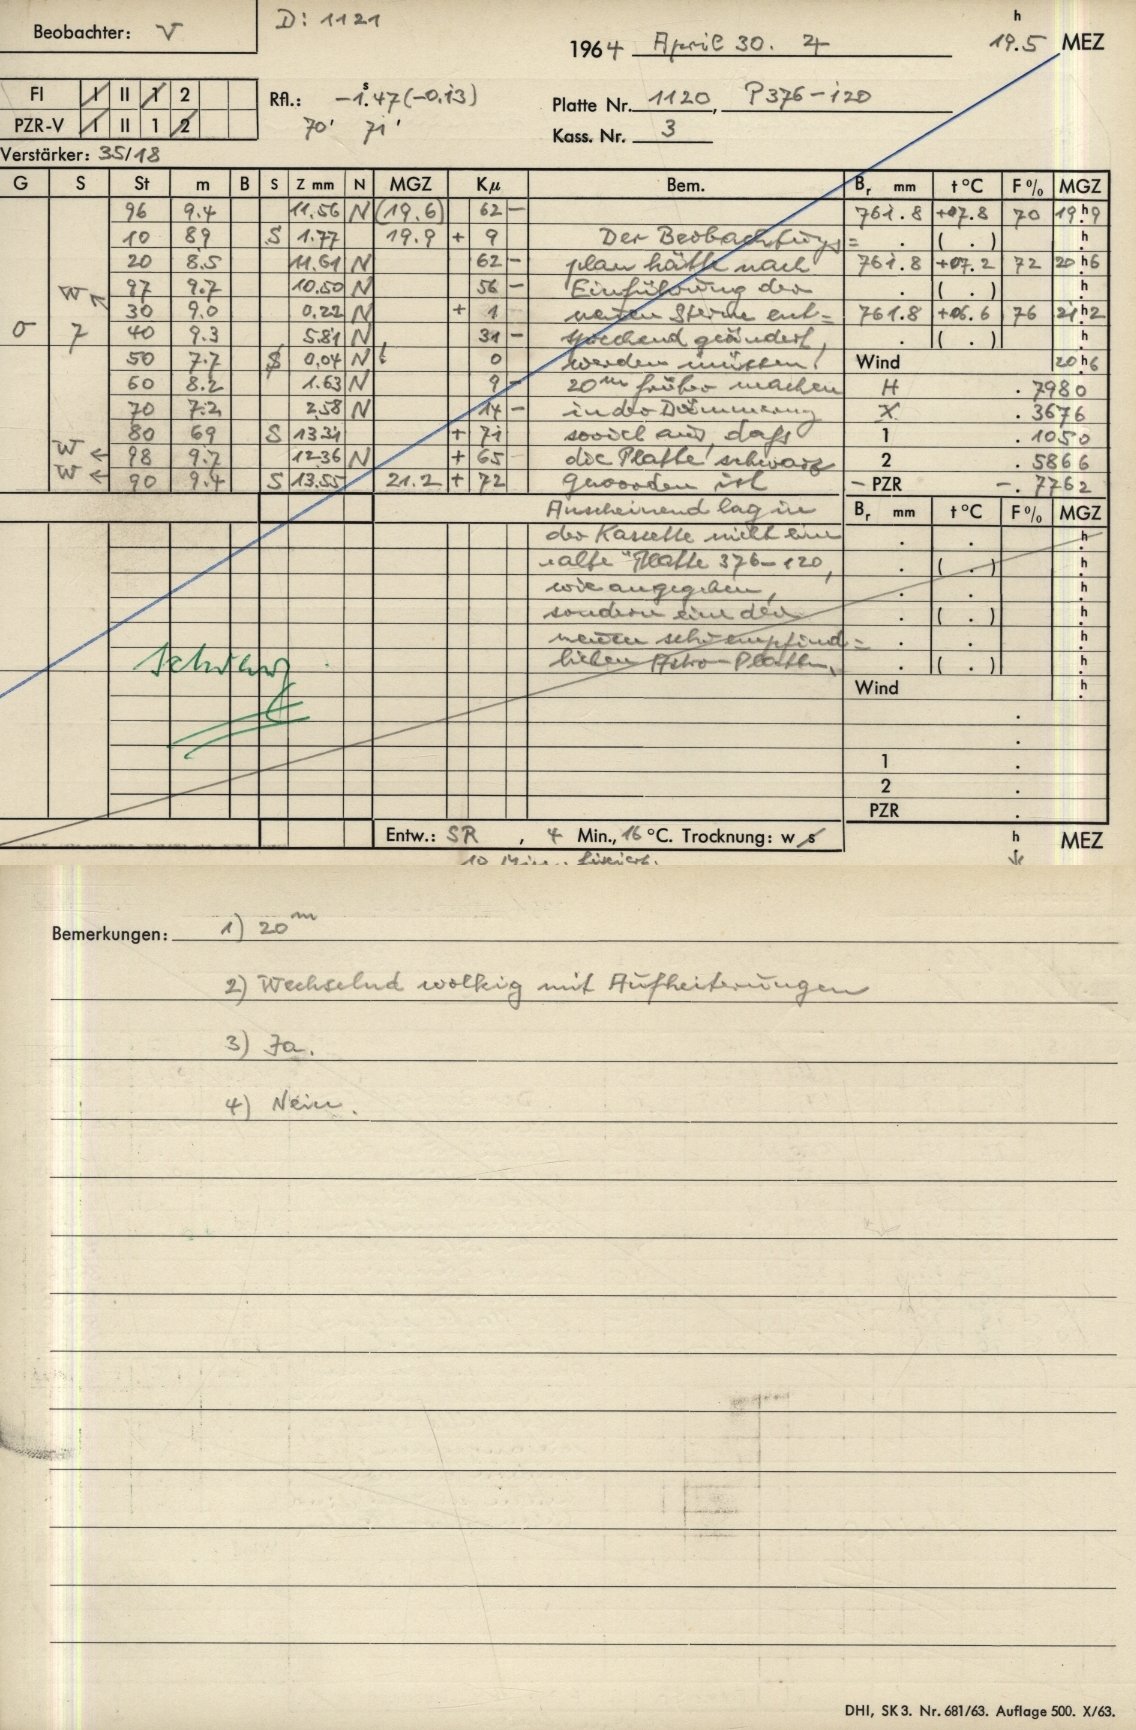 Beobachter: V
D: 1121
h
1964 April 30. 4 19.5 MEZ
FI I II 1 2
PZR-V I II 1 2
Rfl.: -1s.47 (-0.13)
70' 71'
Platte Nr. 1120, P376-120
Kass. Nr. 3
Verstärker: 35/18
G S St m B S Z mm N MGZ Kμ Bem. Br mm t °C F % MGZ
96 9.4 11.56 N (19.6) 62 - 761.8 +07.8 70 19h9
10 89 S 1.77 19.9 + 9 Der Beobachtungs= . ( . ) h
20 8.5 11.61 N 62 - plan hätte nach 761.8 +07.2 72 20h6
W 97 9.7 10.50 N 56 - Einführung der . ( . ) h
30 9.0 0.22 N + 1 neuen Sterne ent= 761.8 +06.6 76 21h2
0 7 40 9.3 5.81 N 31 - sprechend geändert, . ( . ) h
50 7.7 S 0.04 N 0 werden müssen! Wind 20h6
60 8.2 1.63 N 9 - 20m früher machen H . 7980
70 7.2 2.58 N 14 - in der Dämmerung X . 3676
W ← 80 69 S 13.31 + 71 soviel aus, daß 1 . 1050
W ← 98 9.7 12.36 N + 65 die Platte schwarz 2 . 5866
90 9.4 S 13.55 21.2 + 72 geworden ist - PZR -. 7762
Anscheinend lag in Br mm t °C F % MGZ
der Kassette nicht eine . . h
"alte" Platte 376-120, . ( . ) h
wie angegeben, . . h
sondern eine der . ( . ) h
neuen sehr empfind= . . h
lichen Astro-Platten. . ( . ) h
schwarz
Wind h
.
.
1 .
2 .
PZR .
Entw.: SR , 4 Min., 16 °C. Trocknung: w s h MEZ
10 Min. fixiert.
Bemerkungen: 1) 20m
2) Wechselnd wolkig mit Aufheiterungen
3) Ja.
4) Nein.
DHI, SK 3. Nr. 681/63. Auflage 500. X/63.